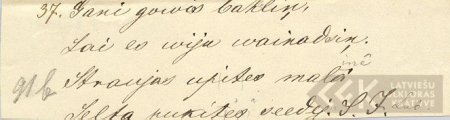 37. Jani gowos baklin,
Lai es wiju wainadsin;
Straujas upites malā
mē
91 b
Selta pukites seedej.
LATVIEŠU
FOLKLORAS
KRĀTUVE